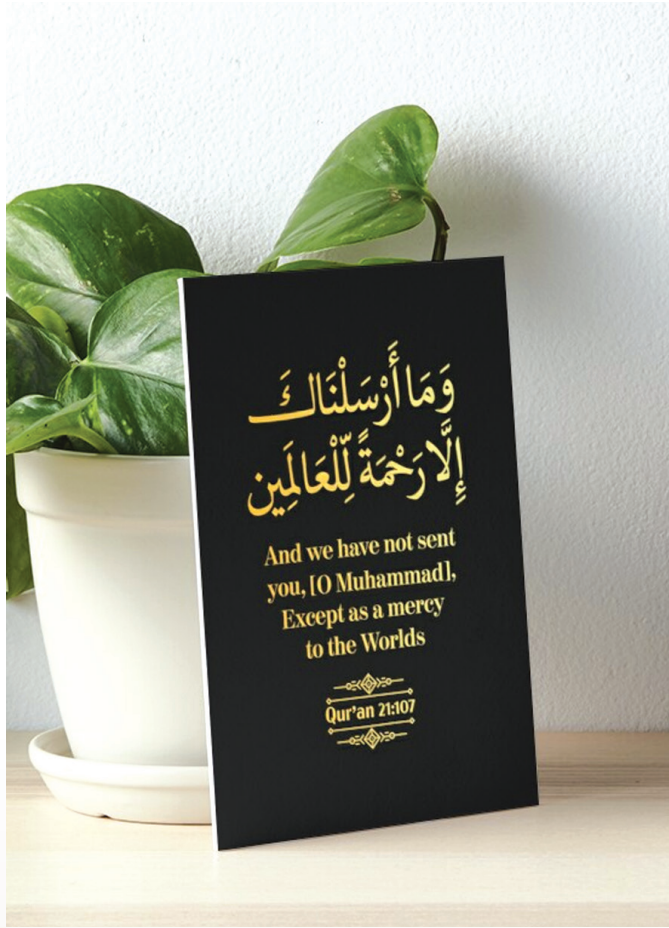 وَمَا أَرْسَلْنَاكَ
إِلَّا رَحْمَةً لِّلْعَالَمِين
And we have not sent
you, [O Muhammad],
Except as a mercy
to the Worlds
Qur'an 21:107